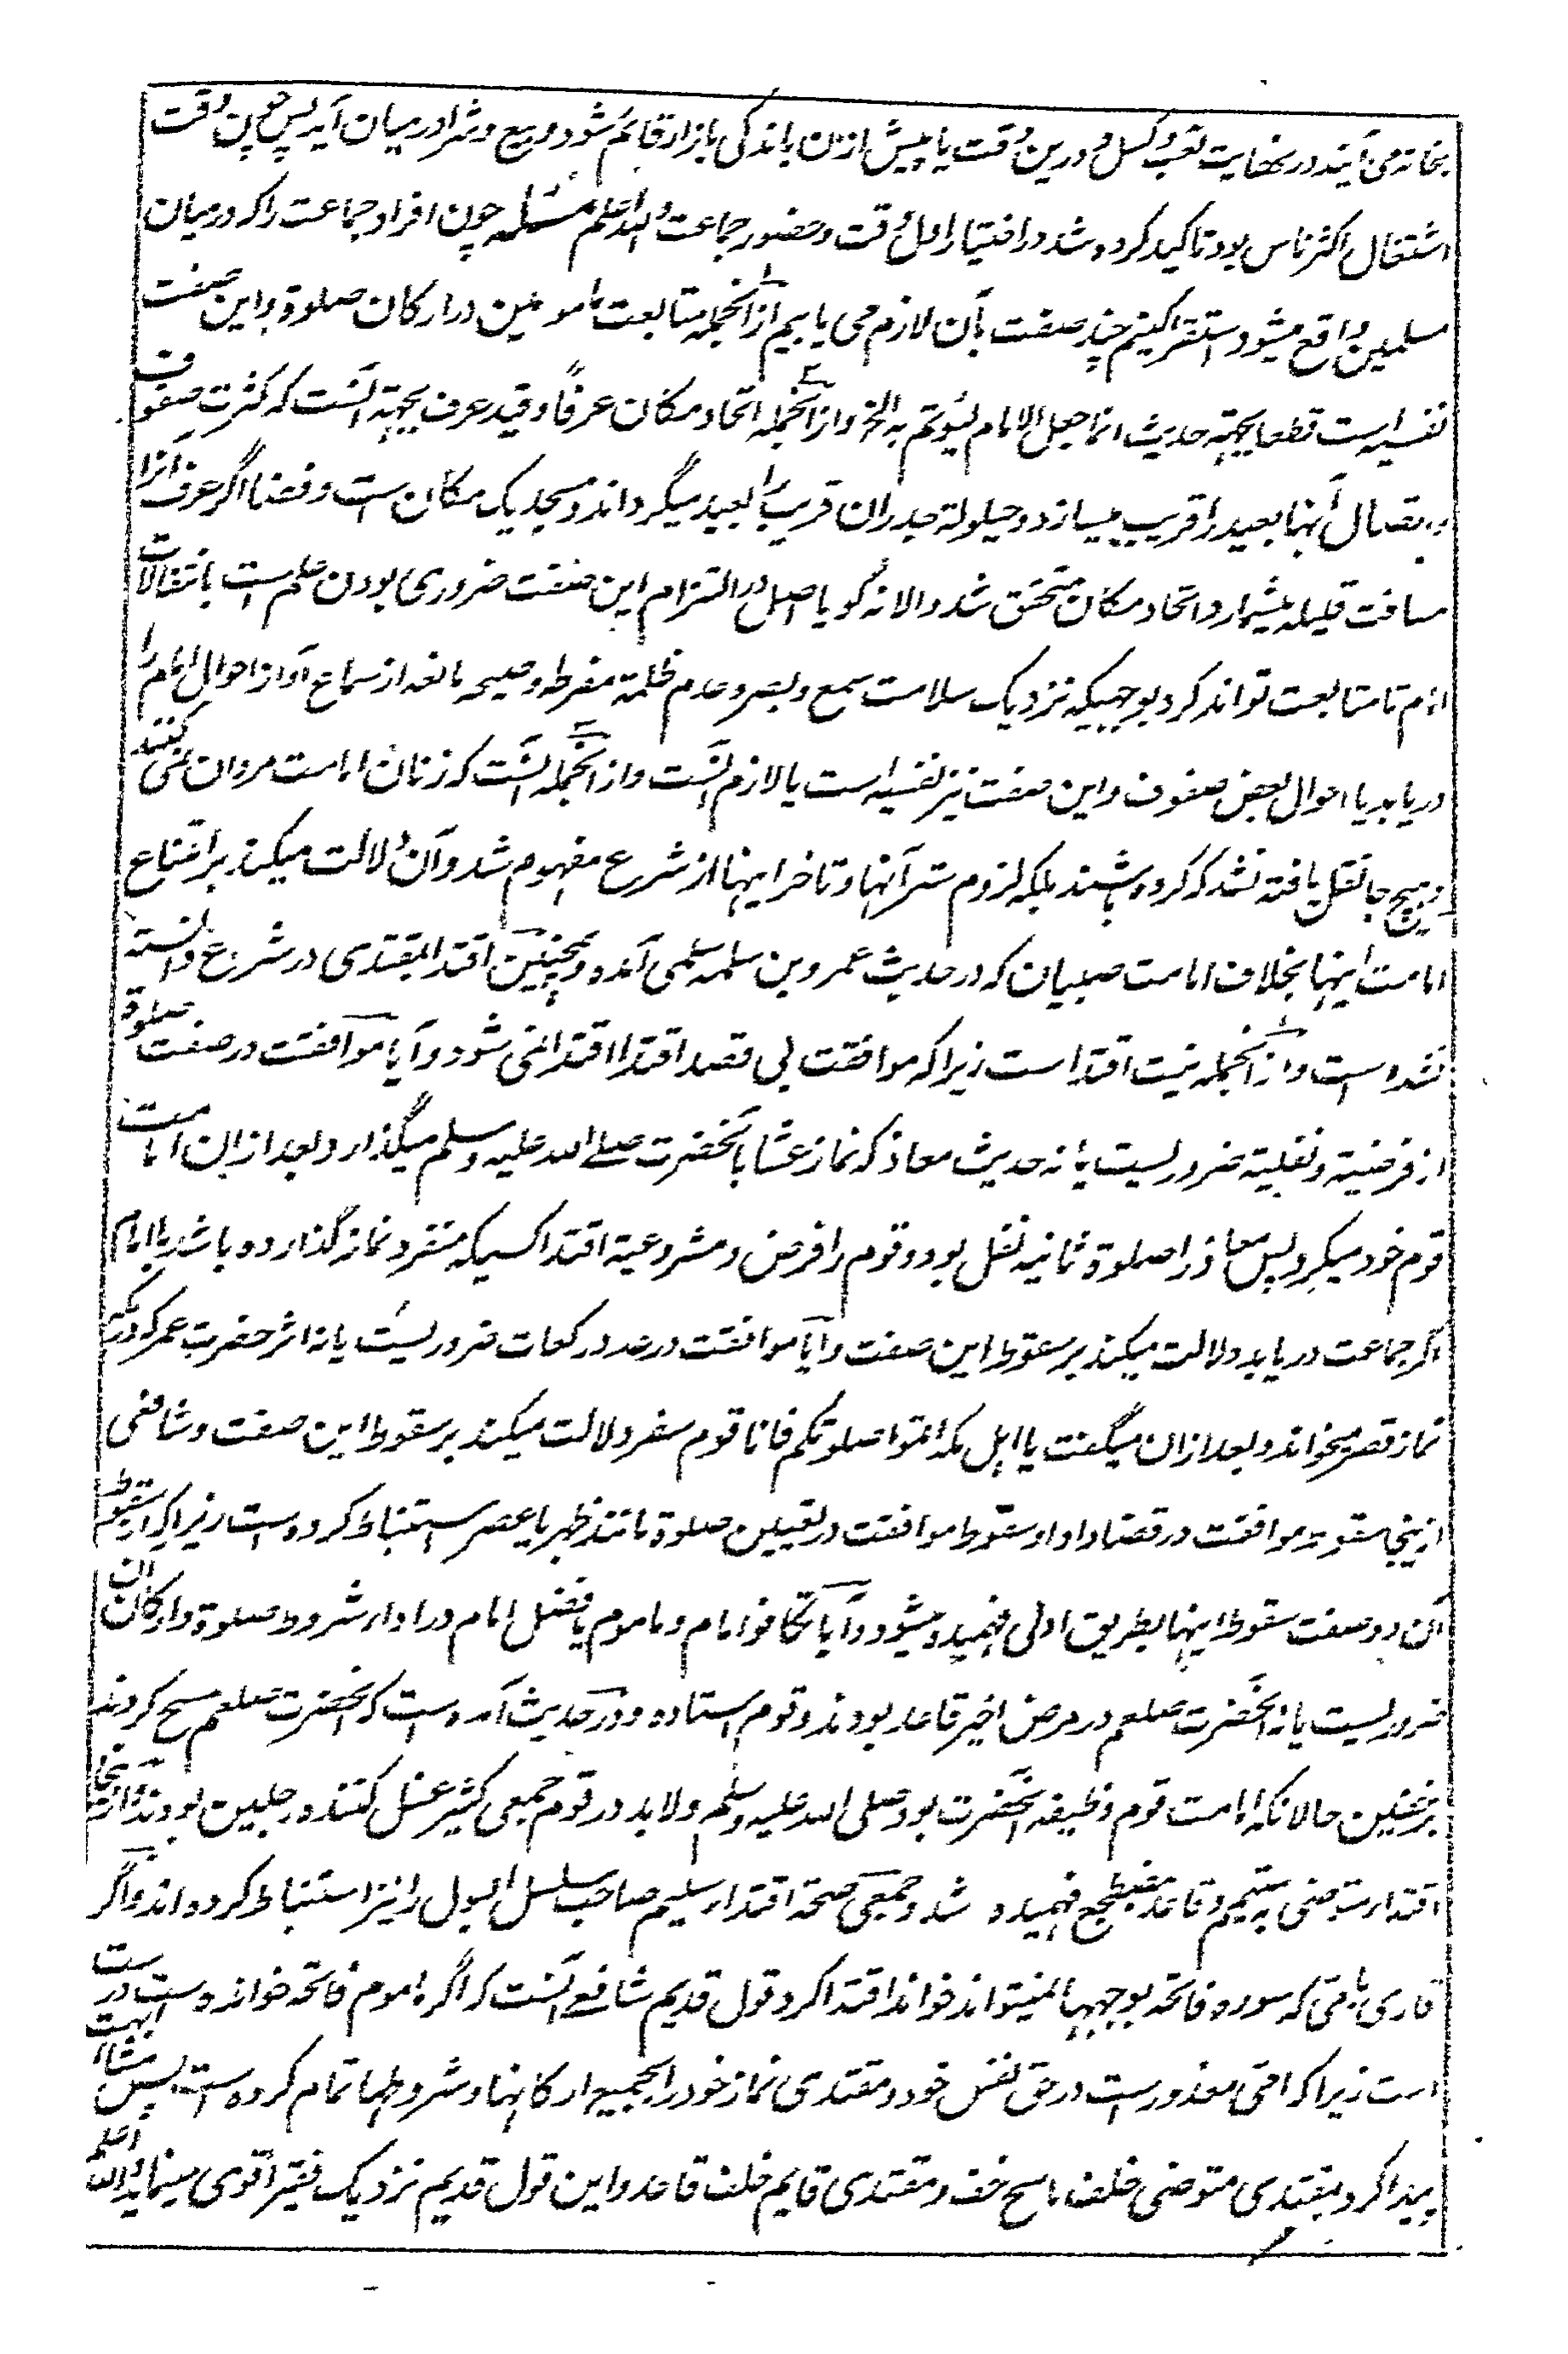 بخانه می آیند در نهایت تعب و کسل و درین وقت یا پیش ازین باندکی بازار قائم شود و بیع و شرا در میان آید پس چون وقت
اشتغال اکثر ناس بود تاکید کرده شد در اختیار اول وقت و حضور جماعت والله اعلم مسئله چون افراد جماعت را که در میان
مسلمین واقع میشود استقرا کنیم چند صفت بآن لازم می یابیم ازانجمله متابعت مامومین در ارکان صلوة و این صفت
نفسیه است قطعا بجهته حدیث انما جعل الامام لیؤتم به الخ و ازانجمله اتحاد مکان عرفاً و قید عرف بجهته آنست که کثرت صفوف
و اتصال آنها بعید را قریب میسازد و حیلولة جدران قریب را بعید میگرداند و مسجد یک مکان است و فضا اگر عرف آنرا
مسافت قلیله میشمارد اتحاد مکان متحقق شد و الا نه گویا اصل در التزام این صفت ضروری بودن علم است بانتقالات
امام تا متابعت تواند کرد بوجهیکه نزدیک سلامت سمع و بصر و عدم ظلمة مفرطه و صیحه مانعه از سماع آواز احوال امام را
دریابد یا احوال بعض صفوف و این صفت نیز نفسیه است یا لازم آنست و ازانجمله آنست که زنان امامت مردان نمی کنند
و هیچ جا نقل یافته نشد که کرده باشند بلکه لزوم ستر آنها و تاخر اینها از شرع مفهوم شد و آن دلالت میکند بر امتناع
امامت اینها بخلاف امامت صبیان که در حدیث عمرو بن سلمه سلمی آمده و همچنین اقتدا بمقتدی در شرع دانسته
نشده است و ازانجمله نیت اقتدا است زیرا که موافقت بی قصد اقتدا اقتدا نمی شود و آیا موافقت در صفت صلوة
از فرضیة و نفلیة ضروریست یا نه حدیث معاذ که نماز عشا با آنحضرت صلے الله علیه وسلم میگذارد و بعد ازان امامت
قوم خود میکرد پس معاذ را صلوة ثانیه نفل بود و قوم را فرض و مشروعیة اقتدا کسیکه منفرد نماز گذارده باشد باامام
اگر جماعت دریابد دلالت میکند بر سقوط این صفت و آیا موافقت در عدد رکعات ضروریست یا نه اثر حضرت عمر که در مکه
نماز قصر میخواند و بعد ازان میگفت یا اهل مکه اتموا صلوتکم فانا قوم سفر دلالت میکند بر سقوط این صفت و شافعی
ازینجا سقوط موافقت در قضا و ادا و سقوط موافقت در تعیین صلوة مانند ظهر یا عصر استنباط کرده است زیراکه از سقوط
آن دو صفت سقوط اینها بطریق اولی فهمیده میشود و آیا تکافؤ امام و ماموم یا فضل امام در اداء شروط صلوة و ارکان آن
ضروریست یا نه آنحضرت صلعم در مرض اخیر قاعد بودند و قوم استاده و در حدیث آمده است که آنحضرت صلعم مسح کردند
بر خفین حالانکه امامت قوم وظیفه آنحضرت بود صلی الله علیه وسلم و لابد در قوم جمعی کثیر غسل کننده رجلین بودند و ازینجا
اقتداء متوضی به متیمم و قاعد بمضطجع فهمیده شد و جمعی صحة اقتداء سلیم صاحب سلسل البول را نیز استنباط کرده اند و اگر
قاری باُمّی که سوره فاتحه بوجهها نمیتواند خواند اقتدا کرد قول قدیم شافعے آنست که اگر ماموم فاتحه خوانده است درست
است زیرا که امی معذور است در حق نفس خود و مقتدی نماز خود را بجمیع ارکانها و شروطها تمام کرده است پس مشابهت
پیدا کرد بمقتدی متوضی خلف ماسح خف و مقتدی قایم خلف قاعد و این قول قدیم نزدیک فقیر اقوی مینماید والله اعلم